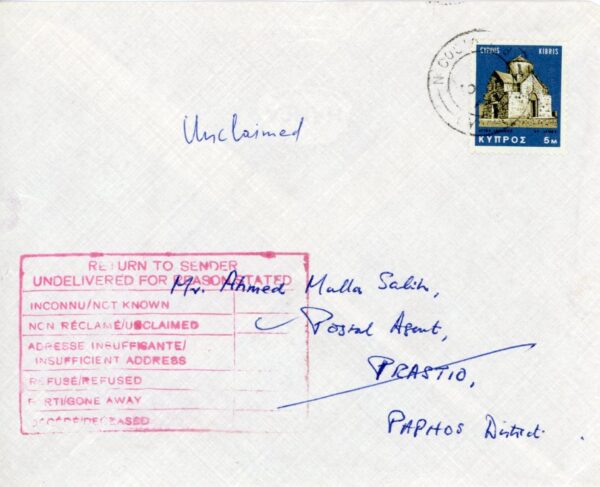 CYPRUS KIBRIS
ΚΥΠΡΟΣ 5 M
Unclaimed
RETURN TO SENDER
UNDELIVERED FOR REASON STATED
INCONNU/NOT KNOWN
NON RÉCLAMÉ/UNCLAIMED
ADRESSE INSUFFISANTE/
INSUFFICIENT ADDRESS
REFUSÉ/REFUSED
PARTI/GONE AWAY
DÉCÉDÉ/DECEASED
Mr. Ahmed Mulla Salih,
Postal Agent,
PRASTIO,
PAPHOS District.